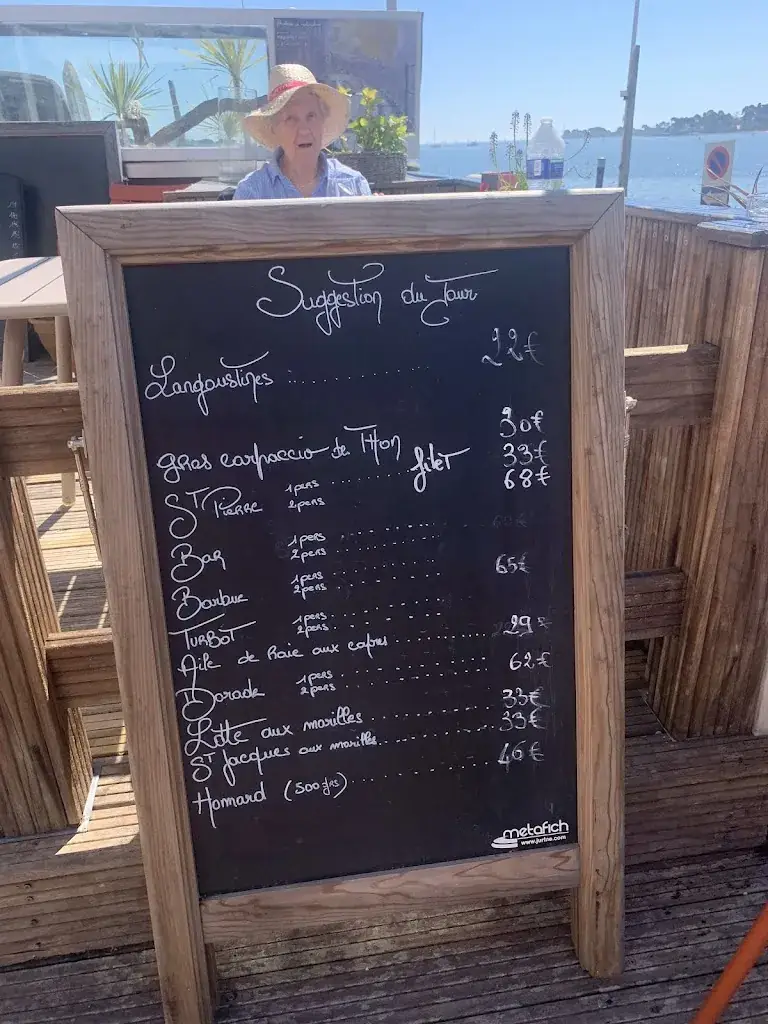 Suggestion du Jour
Langoustines ............... 22€
gras carpaccio de Thon 30€
ST Pierre 1pers ............ filet 33€
2pers ............ 68€
Bar 1pers ............
2pers ............
Barbue 1pers ............
2pers ............ 65€
Turbot 1pers ............
2pers ............
Aile de Raie aux capres ............ 29€
Dorade 1pers ............
2pers ............ 62€
Lotte aux morilles ............ 33€
ST Jacques aux morilles ............ 33€
Homard (500grs) ............ 46€
metafich
www.jurine.com